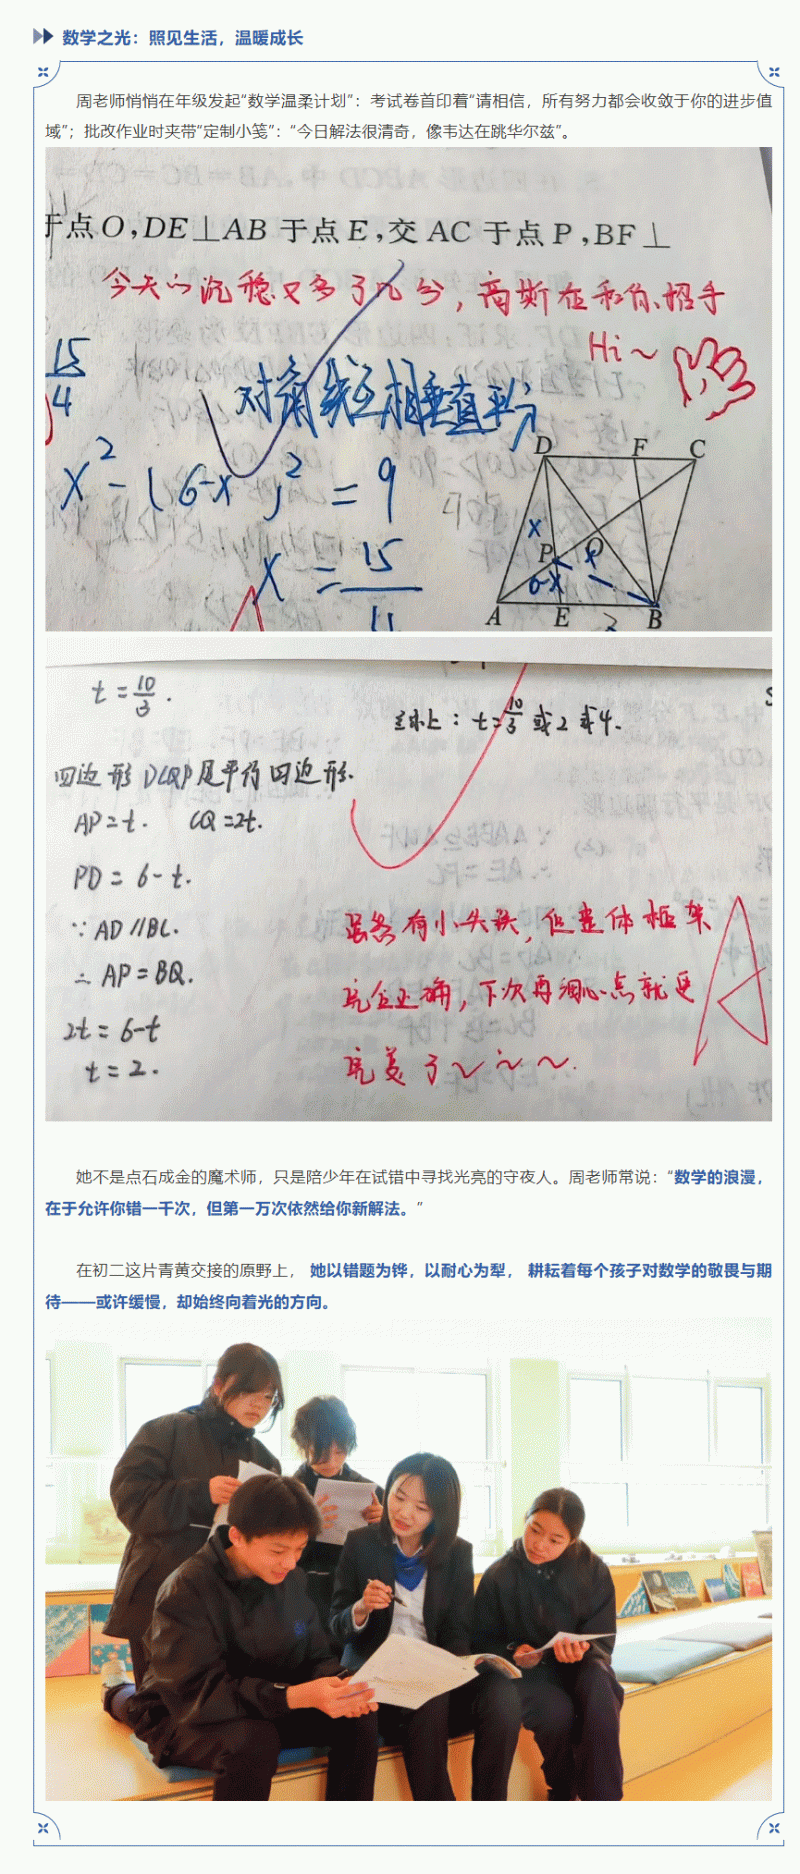 数学之光：照见生活，温暖成长
周老师悄悄在年级发起“数学温柔计划”：考试卷首印着“请相信，所有努力都会收敛于你的进步值
域”；批改作业时夹带“定制小笺”：“今日解法很清奇，像韦达在跳华尔兹”。
于点O,DE⊥AB 于点E,交 AC 于点 P,BF⊥
今天的沉稳又多了几分，高斯在和你招手
Hi~
15
4
对角线互相垂直平分
x²-(6-x)²=9
x=15
D F C
x
P O x
6-x
A E 3 B
t=10/3.
综上：t=10/3 或2 或4.
四边形DCQP是平行四边形.
AP=t. CQ=2t.
PD=6-t.
∵AD//BC.
∴AP=BQ.
2t=6-t
t=2.
虽然有小失误，但整体框架
完全正确，下次再细心点就更
完美了~~~.
她不是点石成金的魔术师，只是陪少年在试错中寻找光亮的守夜人。周老师常说：“数学的浪漫，
在于允许你错一千次，但第一万次依然给你新解法。”
在初二这片青黄交接的原野上， 她以错题为铧，以耐心为犁， 耕耘着每个孩子对数学的敬畏与期
待——或许缓慢，却始终向着光的方向。